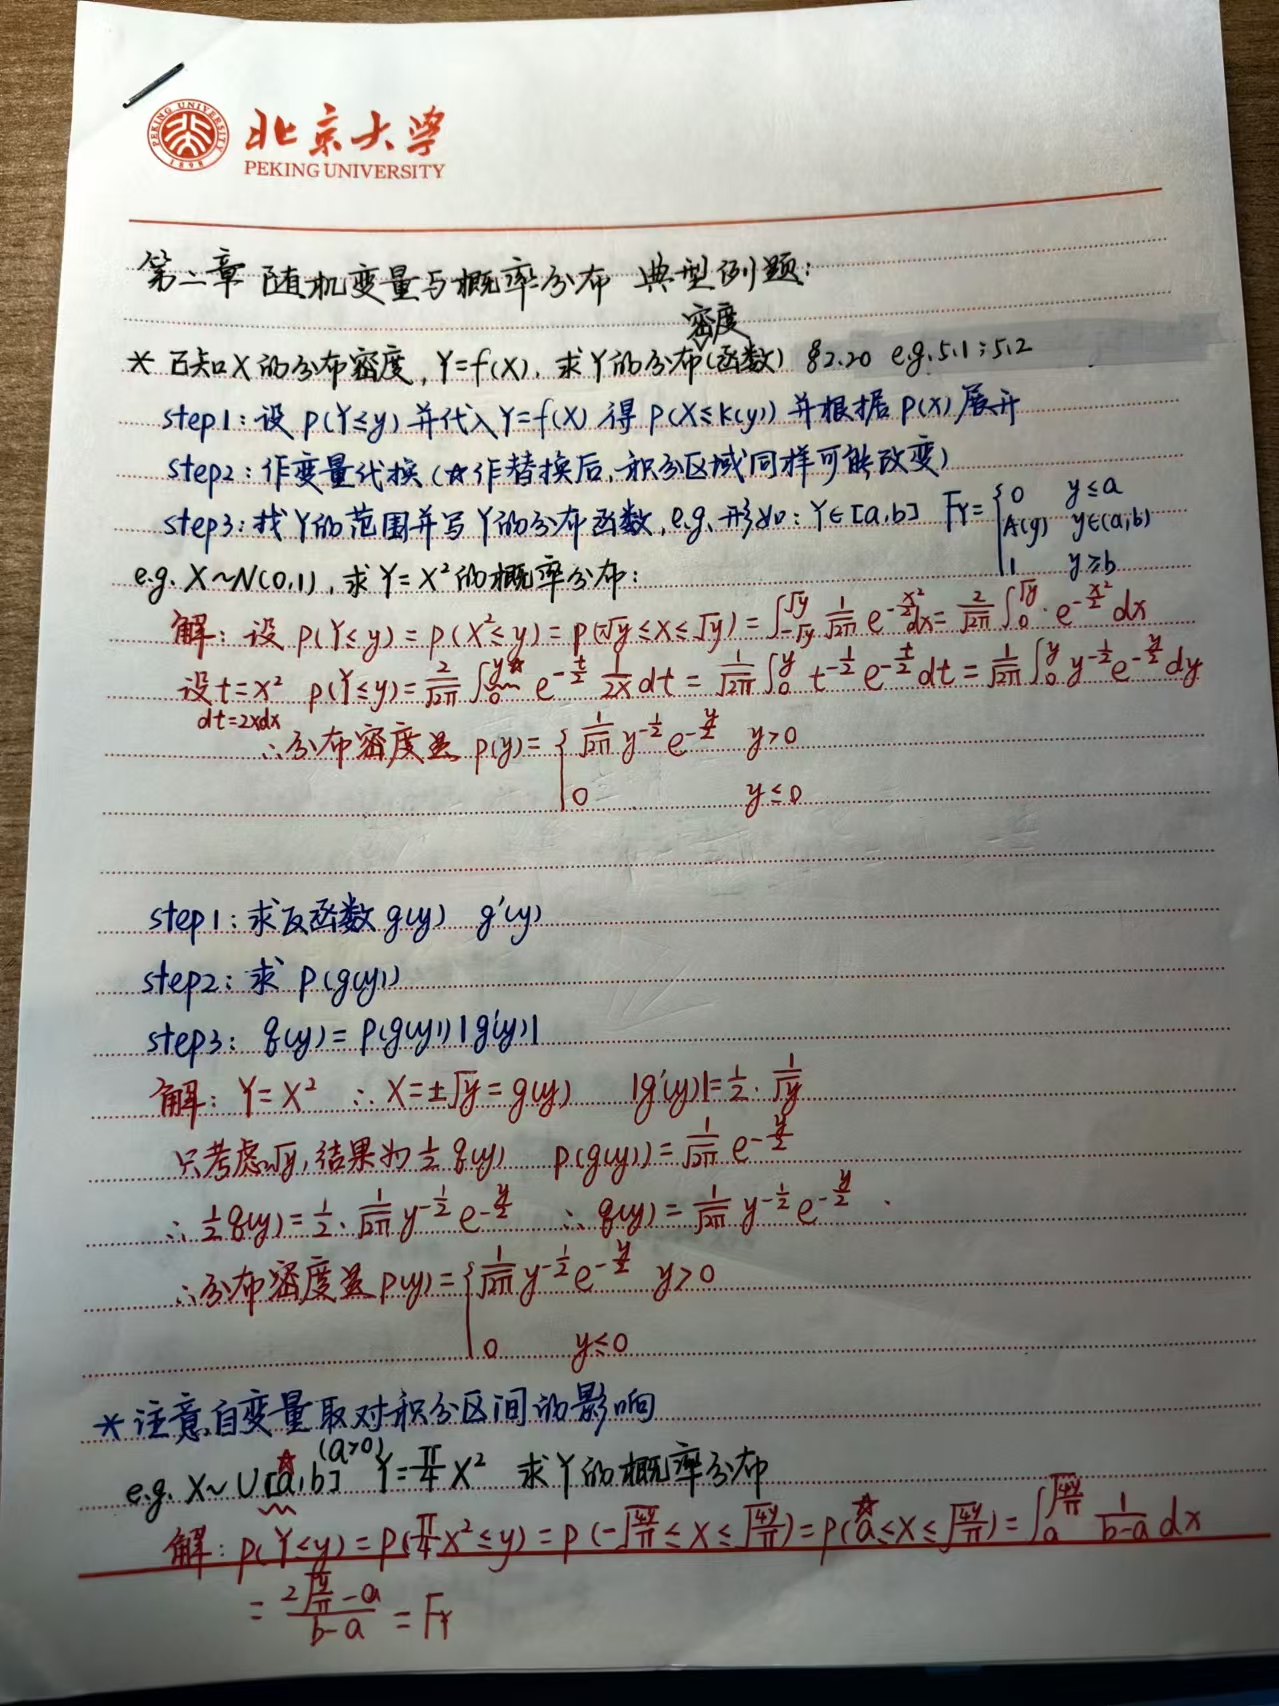 北京大学
PEKING UNIVERSITY
PEKING UNIVERSITY
1898
第二章 随机变量与概率分布 典型例题:
密度
* 已知X的分布密度, Y=f(X), 求Y的分布(函数) §2.20 e.g.5.1;5.2
step1: 设 P(Y≤y) 并代入Y=f(X) 得 P(X≤k(y)) 并根据 P(X) 展开
step2: 作变量代换 (☆作替换后, 积分区域同样可能改变)
step3: 找Y的范围并写Y的分布函数, e.g. 形如: Y∈[a,b] F_Y={0 y≤a
A(y) y∈(a,b)
1 y≥b
e.g. X~N(0,1), 求Y=X²的概率分布:
解: 设 P(Y≤y)=P(X²≤y)=P(-√y≤X≤√y)=∫_{-√y}^{√y} 1/√2π e^{-x²/2}dx=2/√2π ∫_0^{√y} · e^{-x²/2}dx
设t=x² P(Y≤y)=2/√2π ∫_0^{y☆} e^{-t/2} 1/2x dt=1/√2π ∫_0^y t^{-1/2}e^{-t/2}dt=1/√2π ∫_0^y y^{-1/2}e^{-y/2}dy
dt=2xdx
∴分布密度是 p(y)={1/√2π y^{-1/2}e^{-y/2} y>0
0 y≤0
step1: 求反函数 g(y) g'(y)
step2: 求 P(g(y))
step3: q(y)=P(g(y))|g'(y)|
解: Y=X² ∴X=±√y=g(y) |g'(y)|=1/2·1/√y
只考虑√y, 结果为 1/2 q(y) P(g(y))=1/√2π e^{-y/2}
∴1/2 q(y)=1/2·1/√2π y^{-1/2}e^{-y/2} ∴q(y)=1/√2π y^{-1/2}e^{-y/2}.
∴分布密度是 p(y)={1/√2π y^{-1/2}e^{-y/2} y>0
0 y≤0
* 注意自变量取对积分区间的影响
e.g. X~U[a☆,b] (a>0) Y=π/4 X² 求Y的概率分布
解: P(Y≤y)=P(π/4 X²≤y)=P(-√(4y/π)≤X≤√(4y/π))=P(a☆≤X≤√(4y/π))=∫_a^{√(4y/π)} 1/(b-a) dx
=(2√(y/π)-a)/(b-a)=F_Y